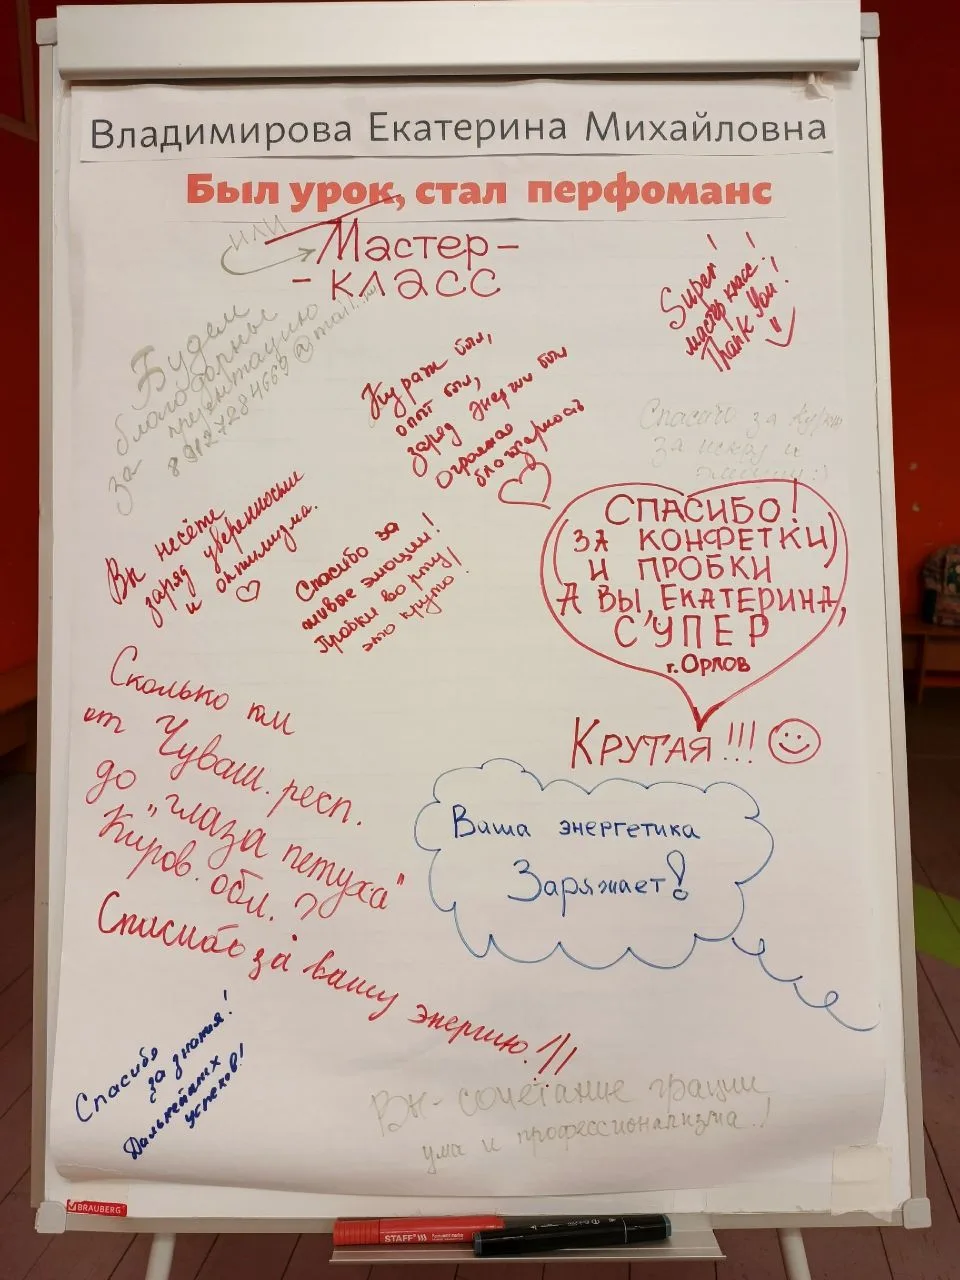 Владимирова Екатерина Михайловна
Был урок, стал перфоманс
или
Мастер-
- класс
Super!
мастер класс!
Thank You!
Будем
благодарны
за презентацию
89127284669@mail.ru
Кураж был,
опыт был,
заряд энергии был
Огромная
благодарность
Спасибо за
за искру и
Вы несёте
заряд уверенности
и оптимизма.
Спасибо за
живые эмоции!
Пробки во рту,
это круто!
Спасибо!
за конфетки)
и пробки
А Вы, Екатерина,
супер
г. Орлов
Крутая!!!
Сколько км
от Чуваш. респ.
до "глаза петуха"
Киров. обл.?
Спасибо за вашу энергию!!!
Ваша энергетика
Заряжает!
Спасибо
за знания!
Дальнейших
успехов!
Вы - сочетание грации
ума и профессионализма!
BRAUBERG
STAFF